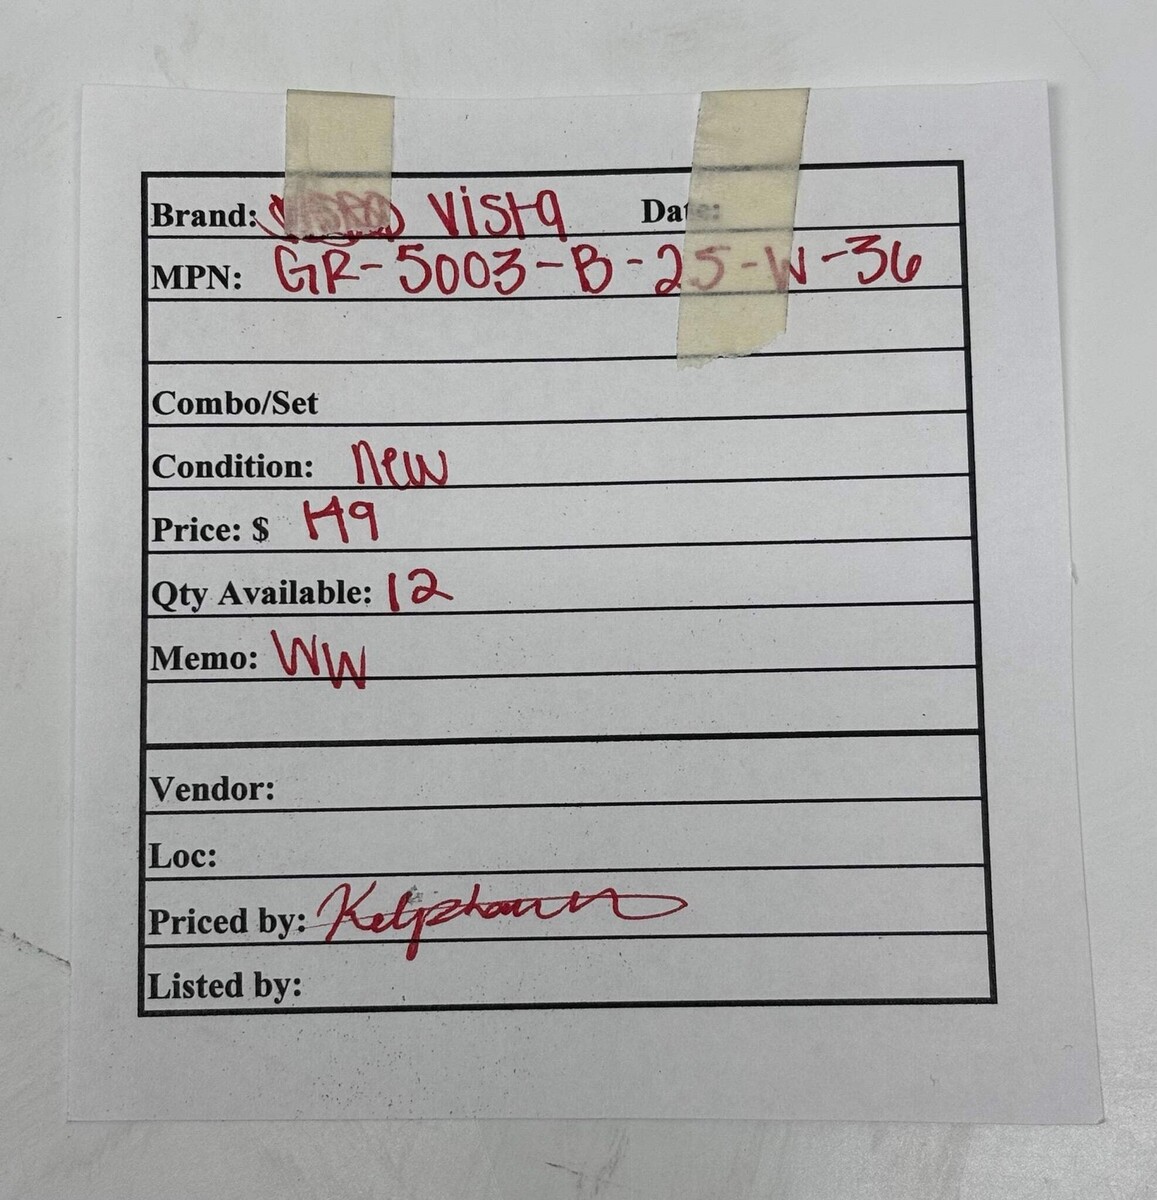 Brand: Vista Date:
MPN: GR-5003-B-25-W-36
Combo/Set
Condition: New
Price: $ 149
Qty Available: 12
Memo: WW
Vendor:
Loc:
Priced by:
Listed by: